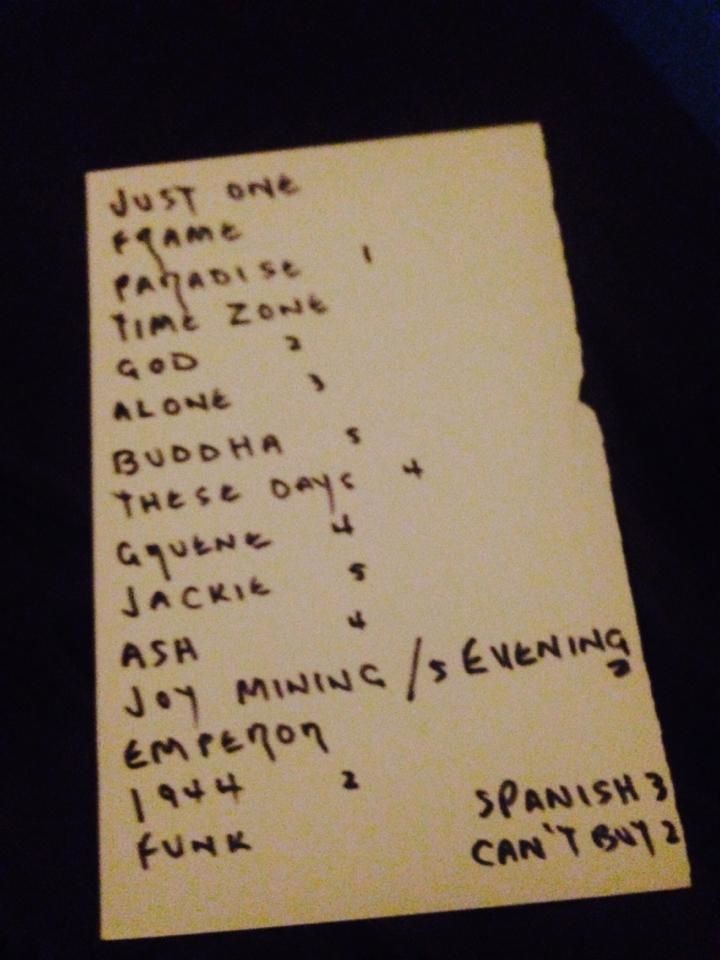 JUST ONE
FRAME
PARADISE 1
TIME ZONE
GOD 2
ALONE 3
BUDDHA 5
THESE DAYS 4
GRUENE 4
JACKIE 5
ASH 4
JOY MINING / 5 EVENING 2
EMPEROR
1944 2
FUNK
SPANISH 3
CAN'T BUY 2